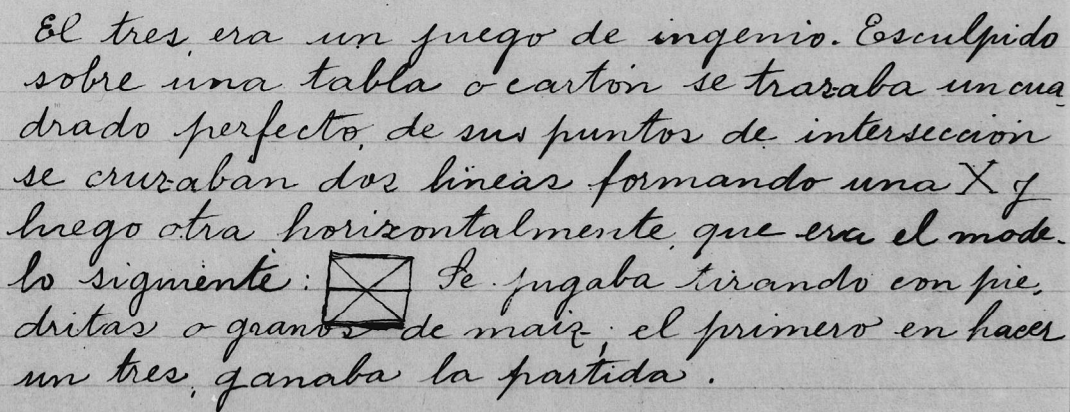 El tres, era un juego de ingenio. Esculpido
sobre una tabla o cartón se trazaba un cua_
drado perfecto, de sus puntos de intersección
se cruzaban dos líneas formando una X y
luego otra horizontalmente, que era el mode-
lo siguiente: Se jugaba tirando con pie,
dritas o granos de maiz; el primero en hacer
un tres, ganaba la partida.